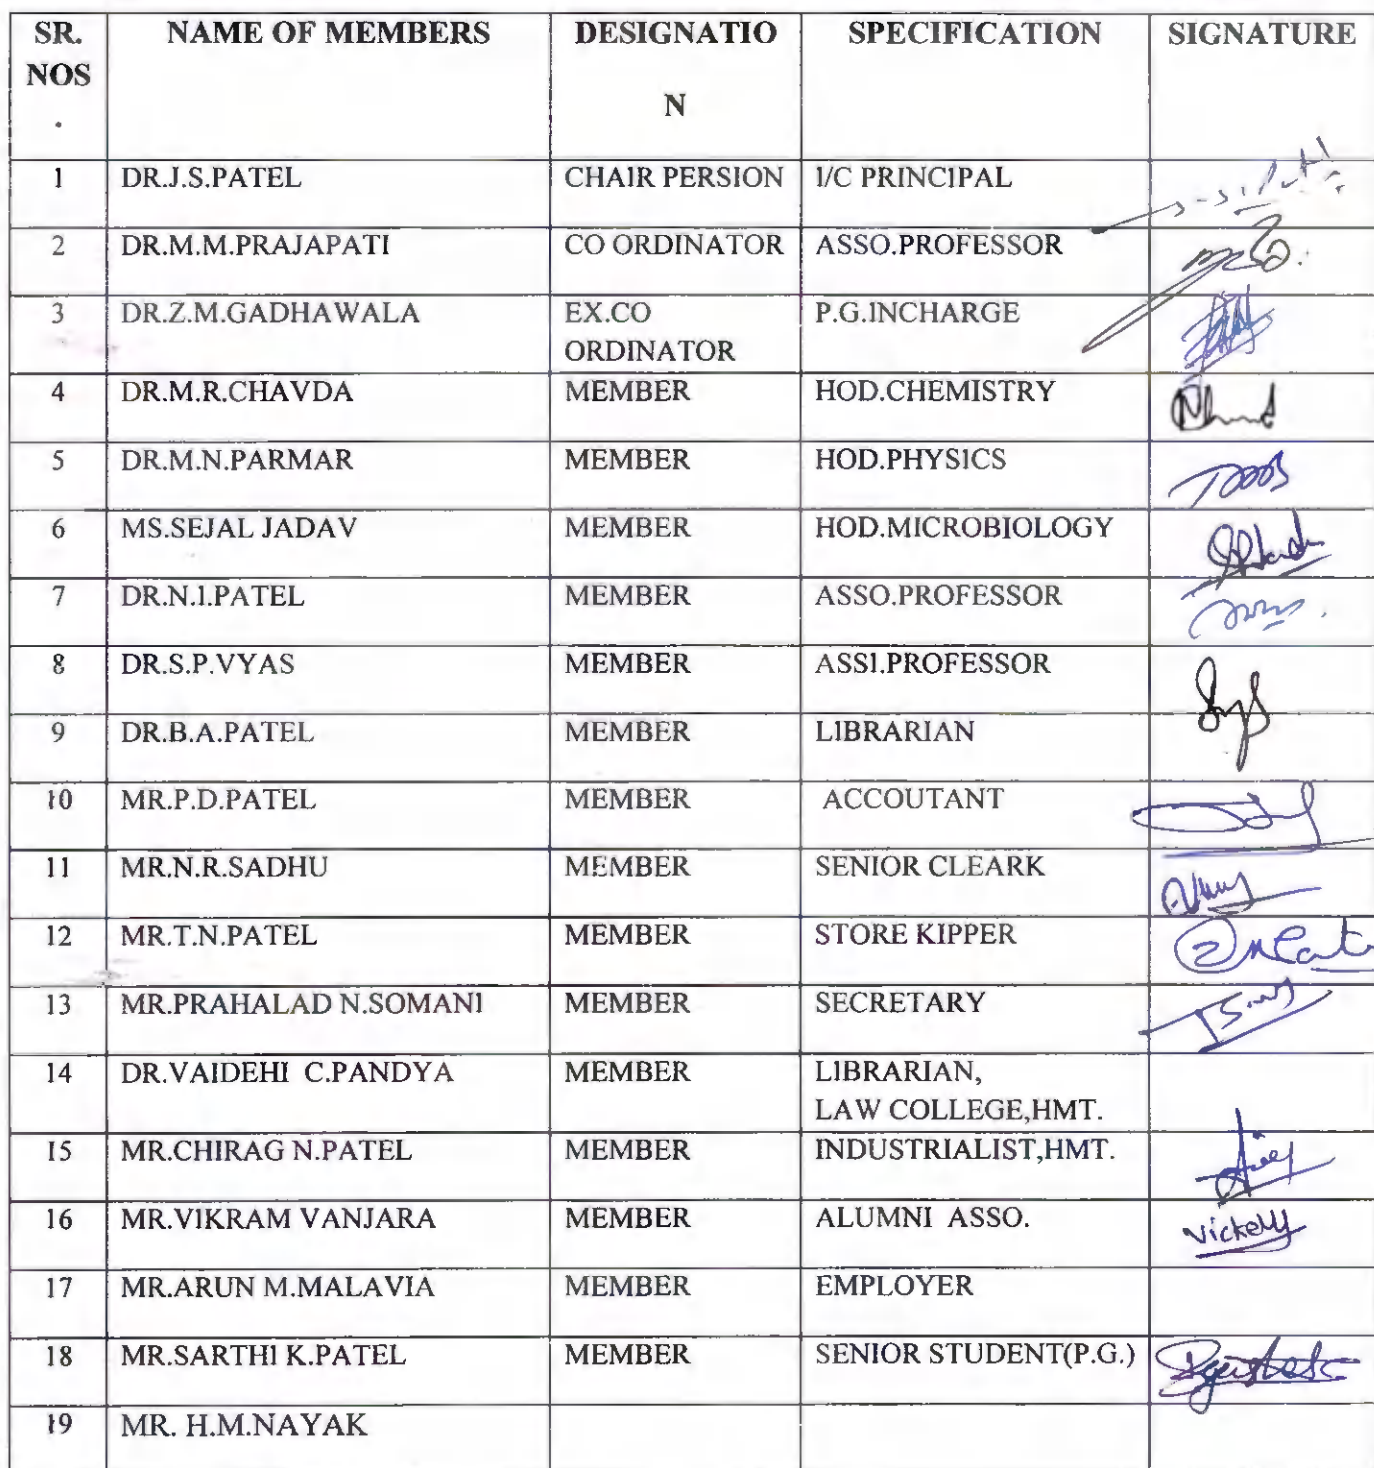 SR. NAME OF MEMBERS DESIGNATIO SPECIFICATION SIGNATURE
NOS
. N
1 DR.J.S.PATEL CHAIR PERSION I/C PRINCIPAL
2 DR.M.M.PRAJAPATI CO ORDINATOR ASSO.PROFESSOR
3 DR.Z.M.GADHAWALA EX.CO P.G.INCHARGE
ORDINATOR
4 DR.M.R.CHAVDA MEMBER HOD.CHEMISTRY
5 DR.M.N.PARMAR MEMBER HOD.PHYSICS
6 MS.SEJAL JADAV MEMBER HOD.MICROBIOLOGY
7 DR.N.I.PATEL MEMBER ASSO.PROFESSOR
8 DR.S.P.VYAS MEMBER ASSI.PROFESSOR
9 DR.B.A.PATEL MEMBER LIBRARIAN
10 MR.P.D.PATEL MEMBER ACCOUTANT
11 MR.N.R.SADHU MEMBER SENIOR CLEARK
12 MR.T.N.PATEL MEMBER STORE KIPPER
13 MR.PRAHALAD N.SOMANI MEMBER SECRETARY
14 DR.VAIDEHI C.PANDYA MEMBER LIBRARIAN,
LAW COLLEGE,HMT.
15 MR.CHIRAG N.PATEL MEMBER INDUSTRIALIST,HMT.
16 MR.VIKRAM VANJARA MEMBER ALUMNI ASSO.
17 MR.ARUN M.MALAVIA MEMBER EMPLOYER
18 MR.SARTHI K.PATEL MEMBER SENIOR STUDENT(P.G.)
19 MR. H.M.NAYAK